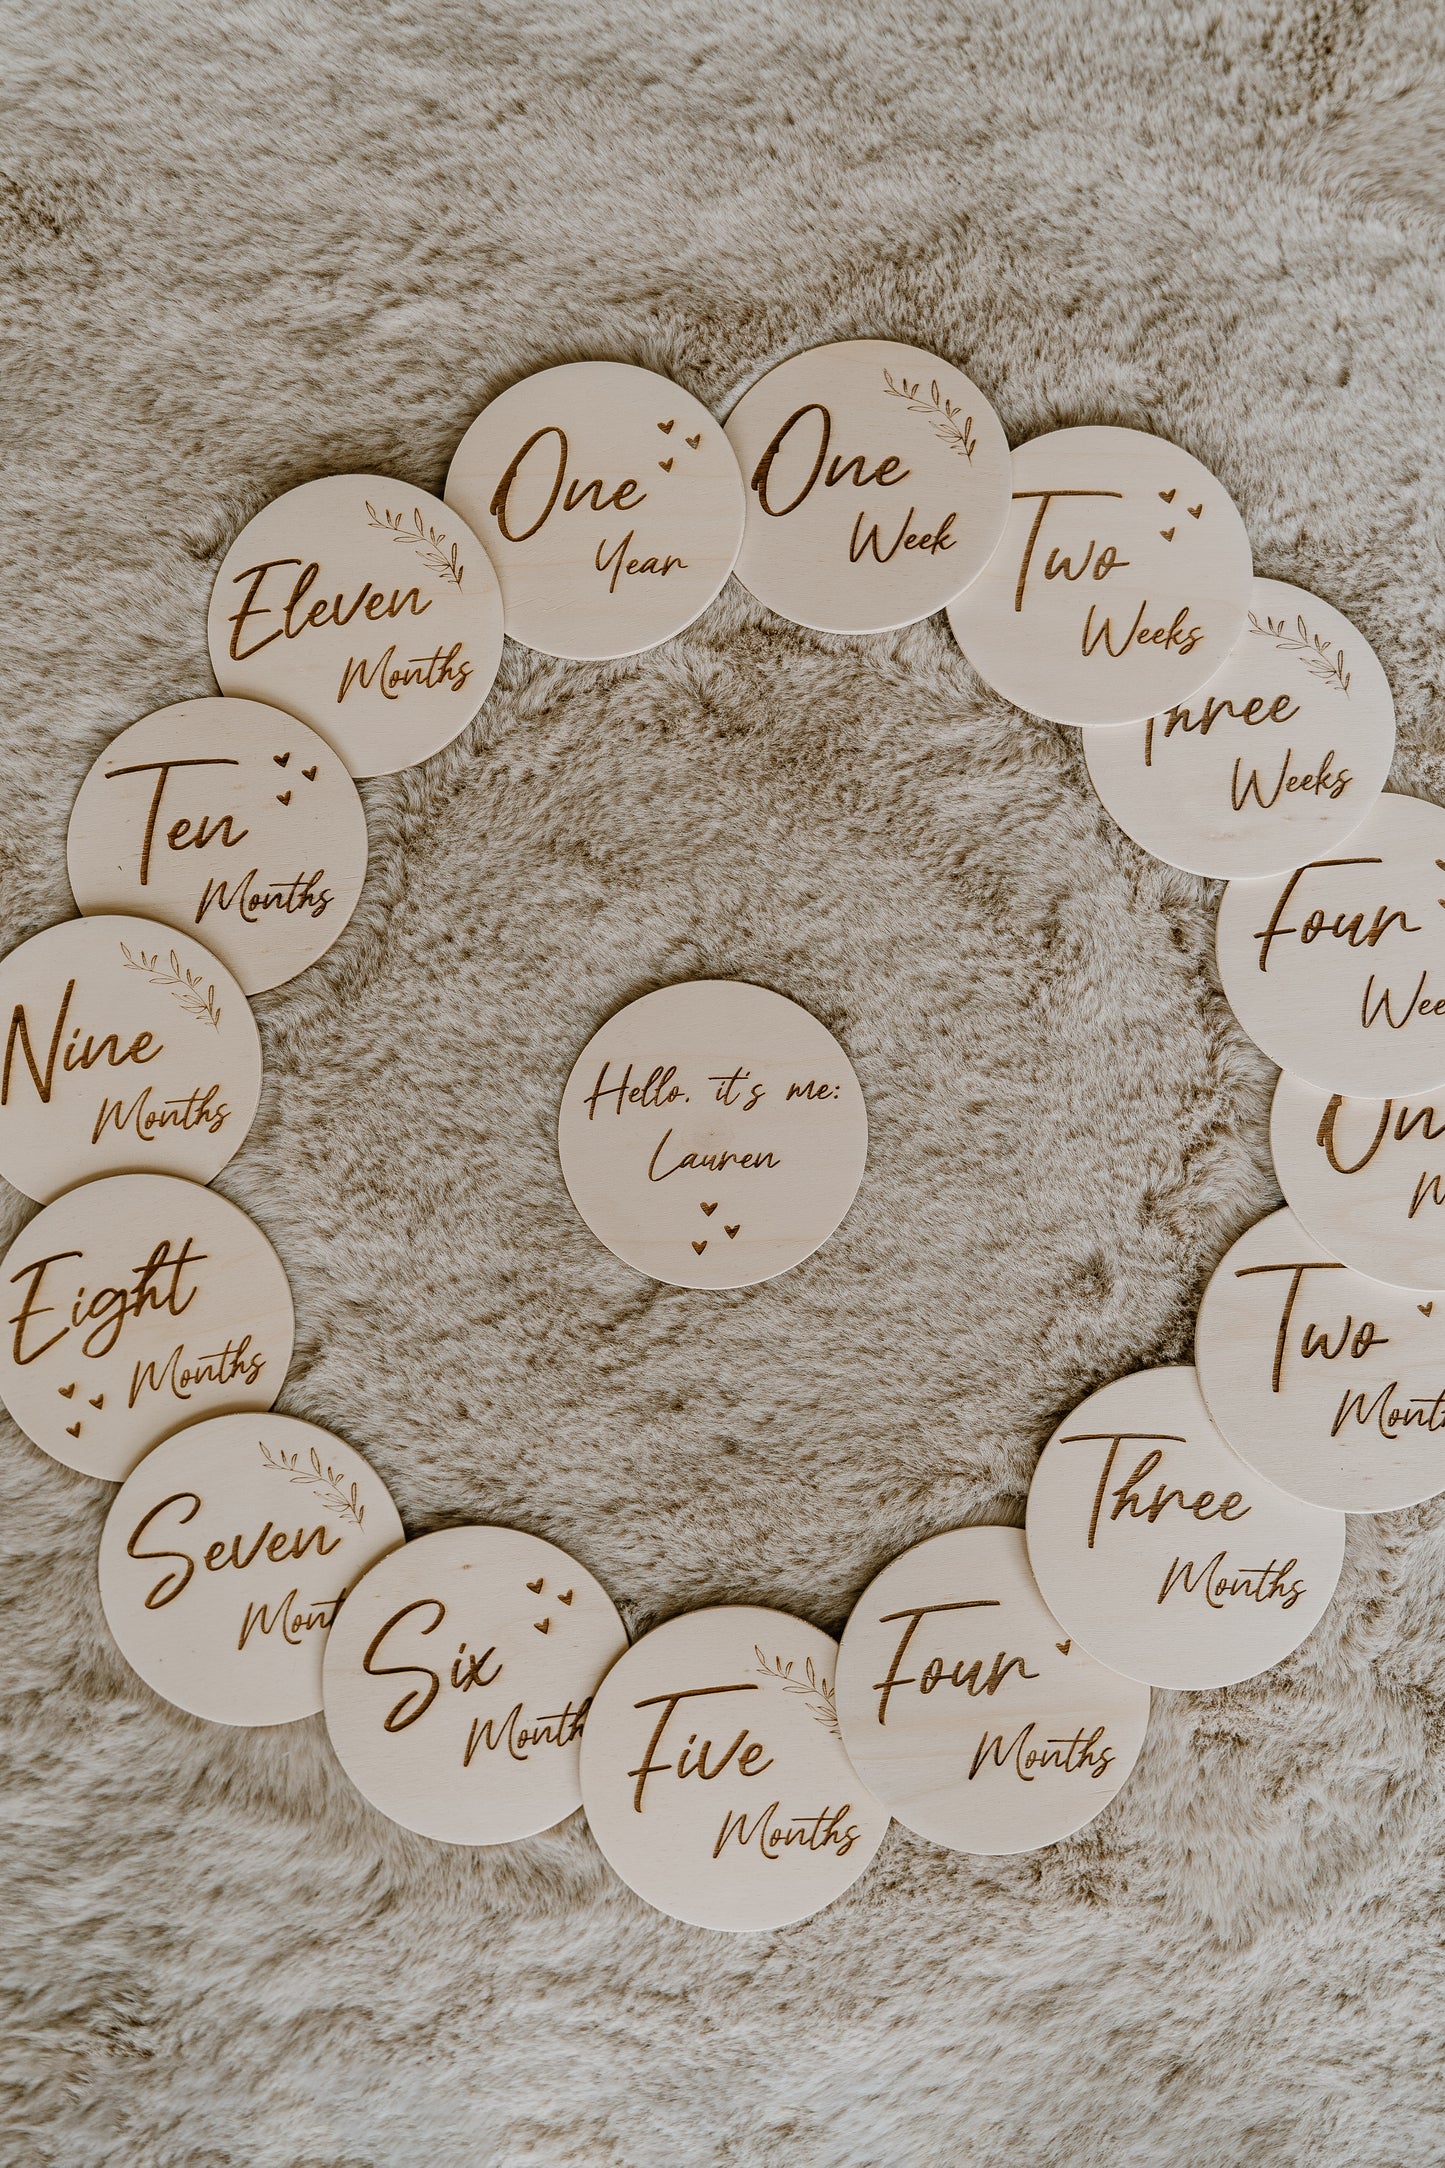 One
Week
Two
Weeks
Three
Weeks
Four
Wee
On
M
Two
Mont
Three
Months
Four
Months
Five
Months
Six
Month
Seven
Mont
Eight
Months
Nine
Months
Ten
Months
Eleven
Months
One
Year
Hello, it's me:
Lauren